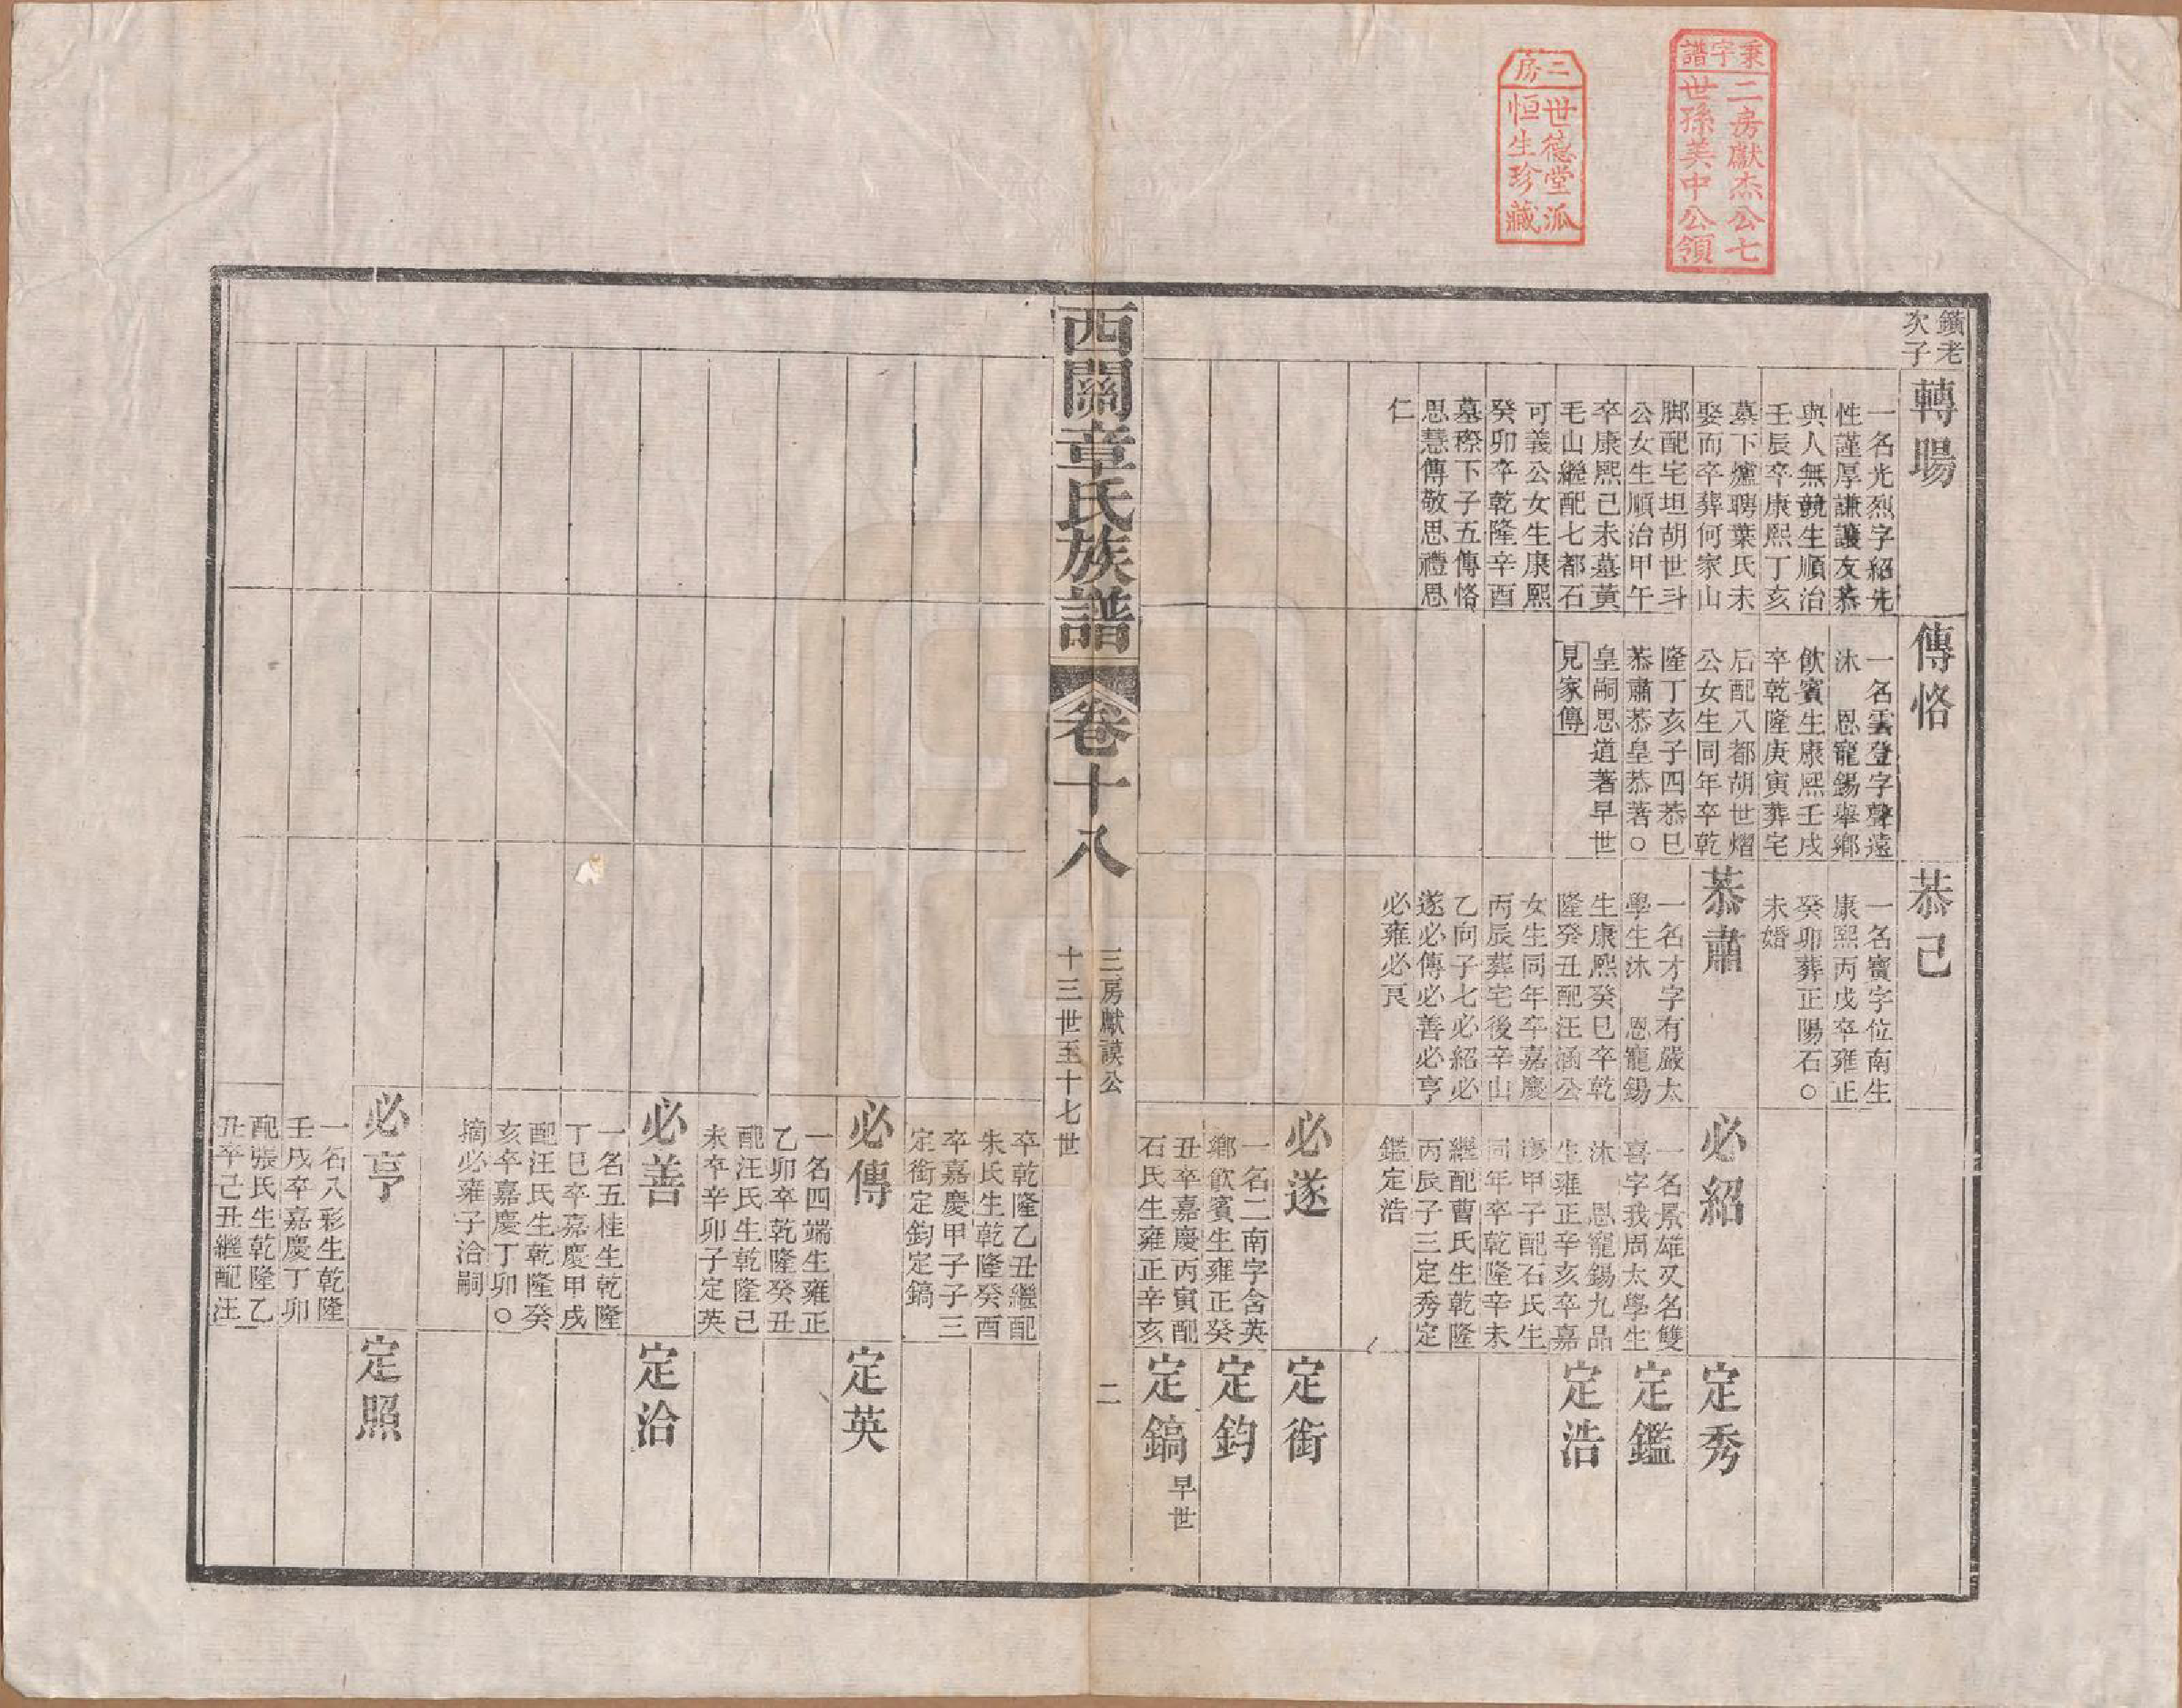 秉字譜
二房獻杰公七
世孫美中公領
三房
世德堂派
恒生珍藏
鑛老
次子
轉陽
一名光烈字紹先
性謹厚謙讓友恭
與人無競生順治
壬辰卒康熙丁亥
墓下爐聘葉氏未
娶而卒葬何家山
脚配宅坦胡世斗
公女生順治甲午
卒康熙己未墓黃
毛山繼配七都石
可義公女生康熙
癸卯卒乾隆辛酉
墓穄下子五傳恪
思慧傳敬思禮思
仁
傳恪
一名雲登字聲遠
沐　恩寵錫舉鄉
飲賓生康熙壬戌
卒乾隆庚寅葬宅
后配八都胡世熠
公女生同年卒乾
隆丁亥子四恭巳
恭肅恭皇恭著○
皇嗣思道著早世
見家傳
恭己
一名寶字位南生
康熙丙戌卒雍正
癸卯葬正陽石○
未婚
恭肅
一名才字有嚴太
學生沐　恩寵錫
生康熙癸巳卒乾
隆癸丑配汪涵公
女生同年卒嘉慶
丙辰葬宅後辛山
乙向子七必紹必
遂必傳必善必亨
必雍必艮
必紹
一名景雄又名雙
喜字我周太學生
沐　恩寵錫九品
生雍正辛亥卒嘉
慶甲子配石氏生
同年卒乾隆辛未
繼配曹氏生乾隆
丙辰子三定秀定
鑑定浩
定秀
定鑑
定浩
必遂
一名二南字含英
鄉飲賓生雍正癸
丑卒嘉慶丙寅配
石氏生雍正辛亥
定銜
定鈞
定鎬
早世
西關章氏族譜
卷十八
三房獻謨公
十三世至十七世
二
卒乾隆乙丑繼配
朱氏生乾隆癸酉
卒嘉慶甲子子三
定銜定鈞定鎬
必傳
一名四端生雍正
乙卯卒乾隆癸丑
配汪氏生乾隆己
未卒辛卯子定英
定英
必善
一名五桂生乾隆
丁巳卒嘉慶甲戌
配汪氏生乾隆癸
亥卒嘉慶丁卯○
摘必雍子洽嗣
定洽
必亨
一名八彩生乾隆
壬戌卒嘉慶丁卯
配張氏生乾隆乙
丑卒己丑繼配汪
定照